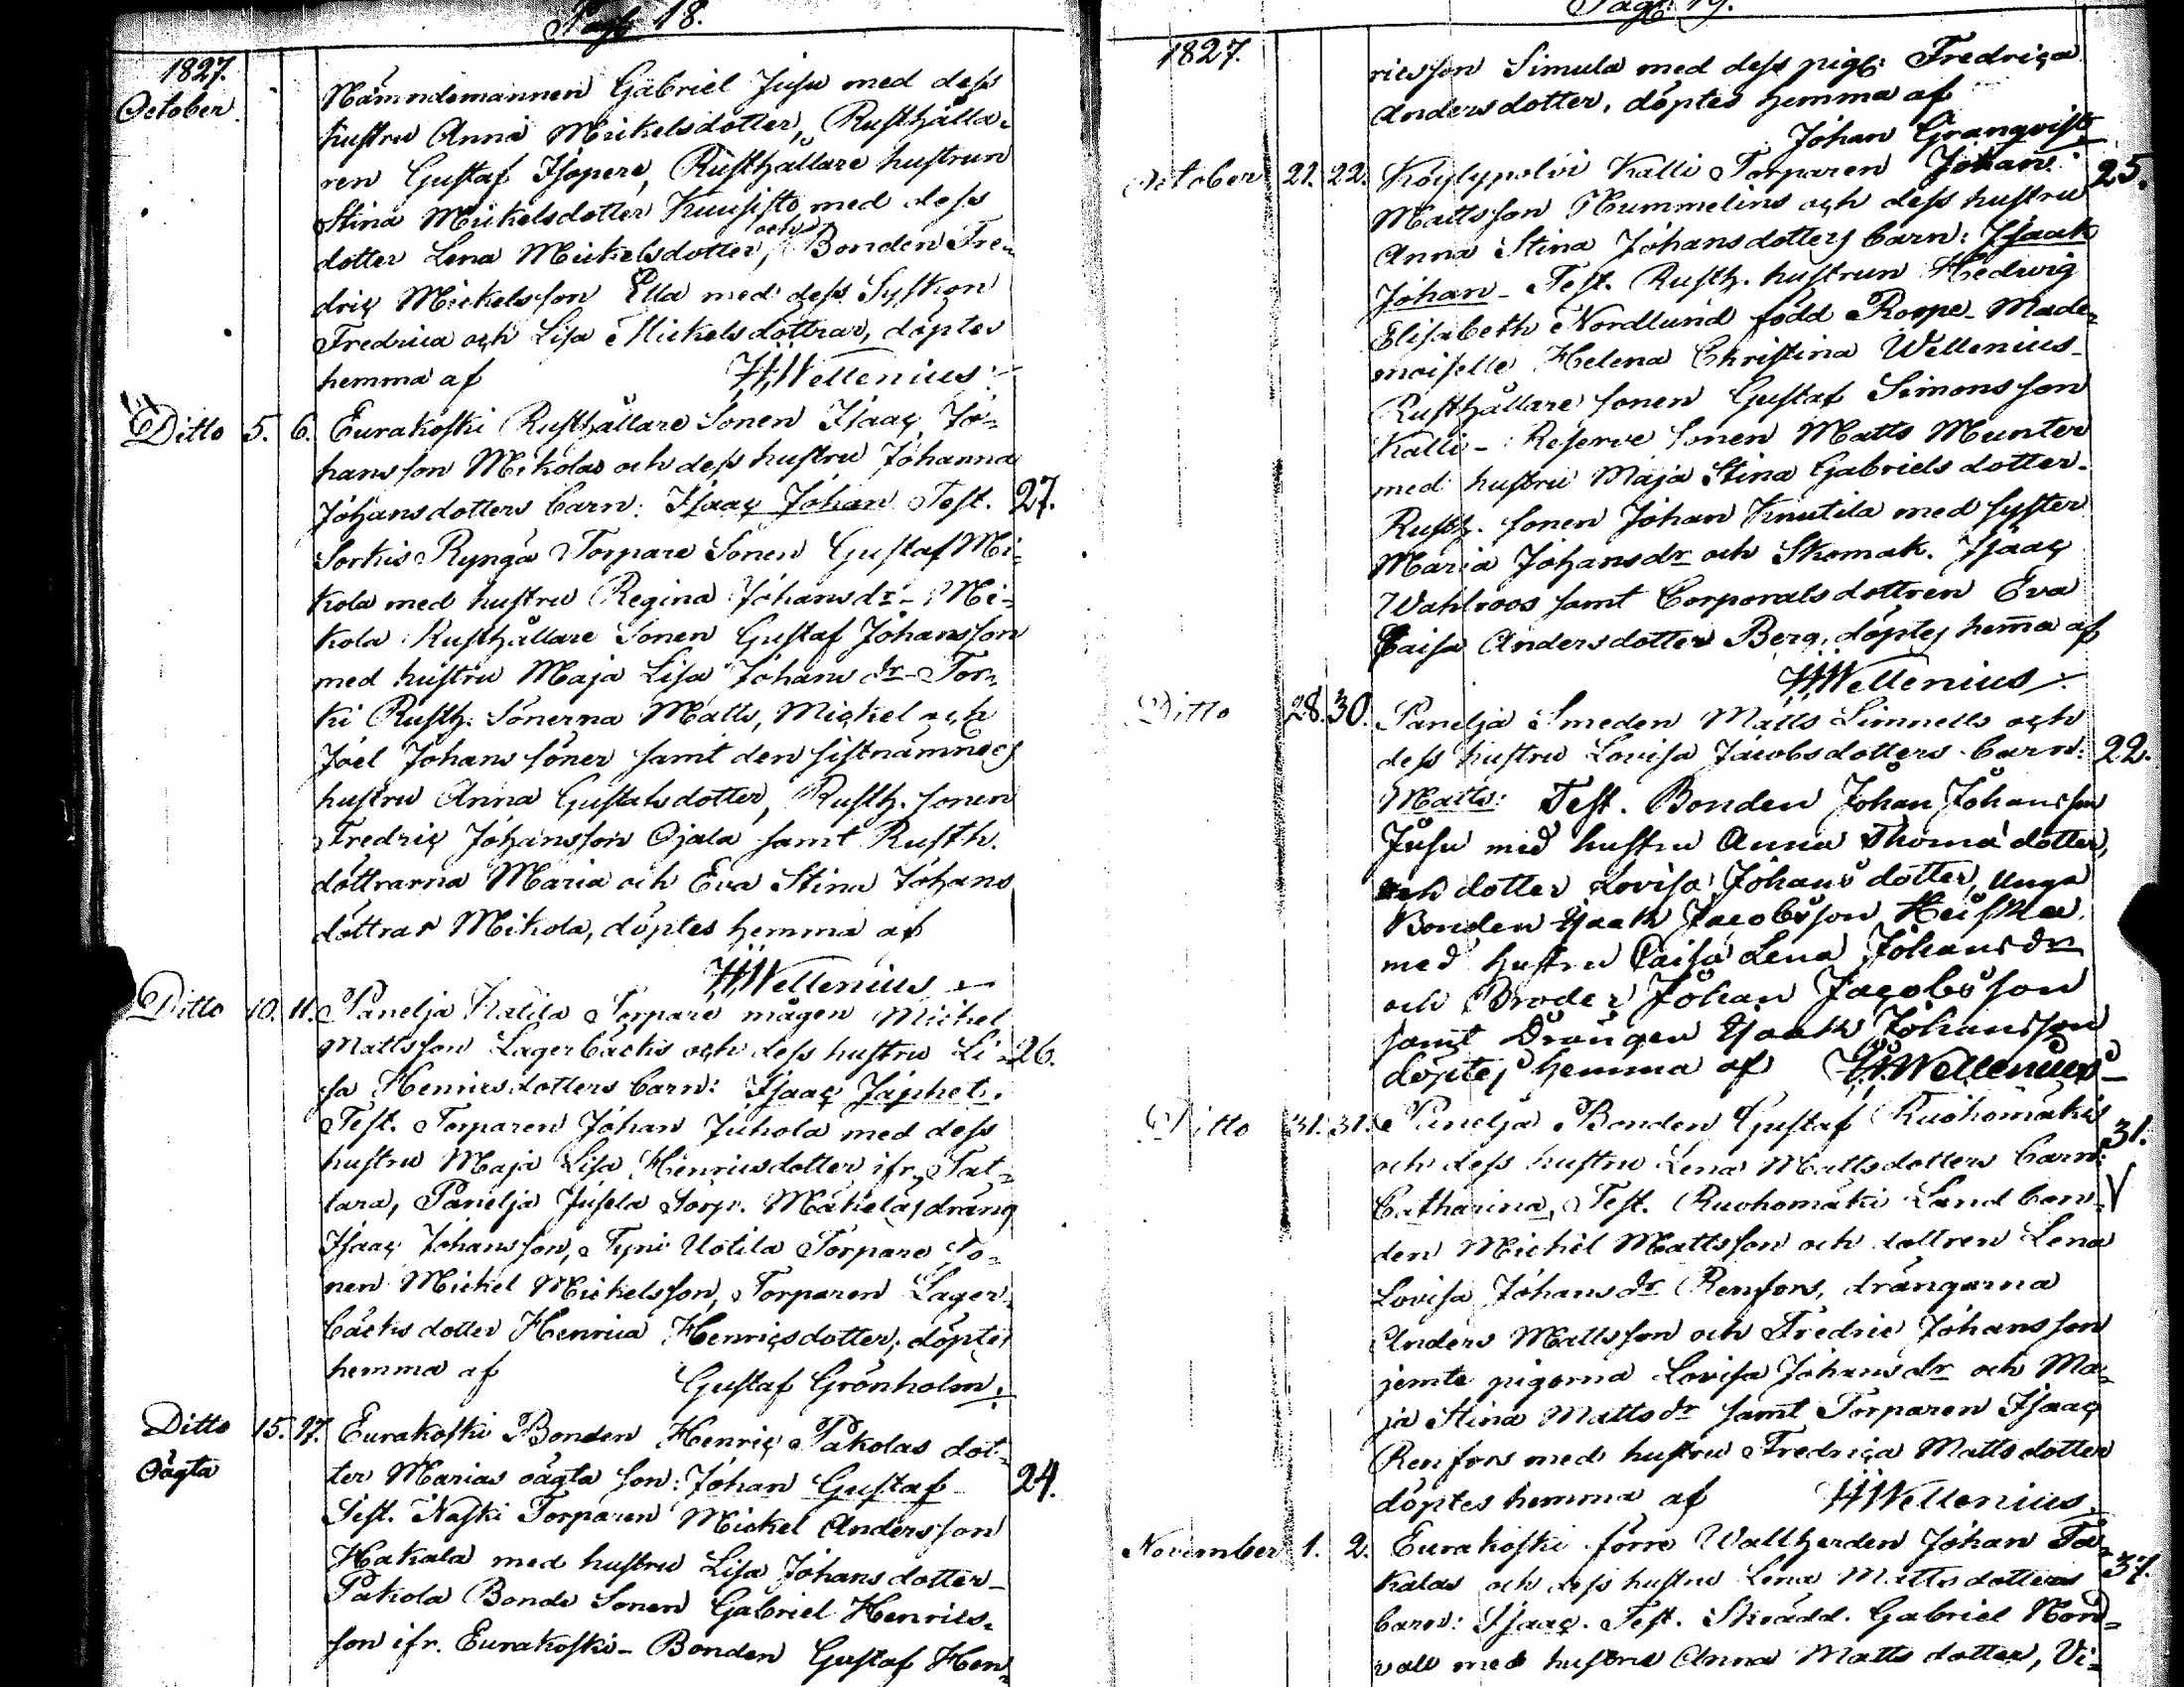 Pag. 18.
1827.
October.
Nämndemannen Gabriel Jusu med dess
hustru Anna Mickelsdotter, Rusthålla-
ren Gustaf Isopere, Rusthållare hustrun
Stina Mickelsdotter Kuusisto med dess
dotter Lena Mickelsdotter, och Bonden Fre-
dric Mickelsson Ella med dess Syskon
Fredrica och Lisa Mickelsdottrar, döptes
hemma af HWellenius
Ditto 5. 6. Eurakoski Rusthållare Sonen Isaac Jo-
hansson Mikolas och dess hustru Johanna
Johansdotters barn: Isaac Johan Test. 27.
Sorkis Rynga Torpare Sonen Gustaf Mi-
kola med hustru Regina Johansdr - Mi-
kola Rusthållare Sonen Gustaf Johansson
med hustru Maja Lisa Johansdr - Tor-
ki Rusth. Sönerna Matts, Mickel och
Joel Johanssöner samt den sistnämndes
hustru Anna Gustafsdotter, Rusth. sonen
Fredric Johansson Ojala samt Rusth.
döttrarna Maria och Eva Stina Johans
döttrar Mikola, döptes hemma af
HWellenius
Ditto 10. 11. Panelja Katila Torpare mågen Mickel
Mattsson Lagerbäcks och dess hustru Li- 26.
sa Henricsdotters barn: Isaac Japhet.
Test. Torparen Johan Juhola med dess
hustru Maja Lisa Henricsdotter ifr. Tat-
tara, Panelja Jusela Torp. Mäkeläs dräng
Isaac Johansson, Tyni Uotila Torpare So-
nen Mickel Mickelsson, Torparen Lager-
bäcks dotter Henrica Henricsdotter; döptes
hemma af Gustaf Grönholm.
Ditto 15. 17. Eurakoski Bonden Henric Pakolas dot-
Oägta ter Marias oägta son: Johan Gustaf 24.
Test. Naski Torparen Mickel Andersson
Hakala med hustru Lisa Johansdotter -
Pakola Bonde Sonen Gabriel Henrics-
son ifr. Eurakoski - Bonden Gustaf Hen-
Pag. 19.
1827.
ricsson Simula med dess piga Fredrica
Andersdotter, döptes hemma af
Johan Granqvist
October 21. 22. Köylypolvi Kalli Torparen Johan 25.
Mattsson Hummelins och dess hustru
Anna Stina Johansdotters barn: Isaak
Johan - Test. Rusth. hustrun Hedwig
Elisabeth Nordlund född Roope - Made-
moiselle Helena Christina Wellenius -
Rusthållare sonen Gustaf Simonsson
Kalli - Reserve sonen Matts Munter
med hustru Maja Stina Gabrielsdotter -
Rusth. sonen Johan Knutila med syster
Maria Johansdr och Skomak. Isaac
Wahlroos samt Corporalsdottren Eva
Caisa Andersdotter Berg, döptes hemma af
HWellenius
Ditto 28. 30. Panelja Smeden Matts Linnells och
dess hustru Lovisa Jacobsdotters barn: 22.
Matts: Test. Bonden Johan Johansson
Jusu med hustru Anna Thomadotter,
och dotter Lovisa Johansdotter, unga
Bonden Isaak Jacobsson Heiska
med hustru Caisa Lena Johansdr
och Broder Johan Jacobsson
samt Drängen Isaak Johansson
döptes hemma af HWellenius
Ditto 31. 31. Panelja Bonden Gustaf Ruohomäkis 31.
och dess hustru Lena Mattsdotters barn:
Catharina, Test. Ruohomäki Landbon-
den Mickel Mattsson och dottren Lena
Lovisa Johansdr Renfors, drängarna
Anders Mattsson och Fredric Johansson
jemte pigorna Lovisa Johansdr och Ma-
ja Stina Mattsdr samt Torparen Isaac
Renfors med hustru Fredrica Mattsdotter
döptes hemma af HWellenius
November 1. 2. Eurakoski förre Wallherden Johan Ta- 37.
kalas och dess hustru Lena Mattsdotters
barn: Isaac. Test. Skrädd. Gabriel Nord-
vall med hustru Anna Mattsdotter, Vi-